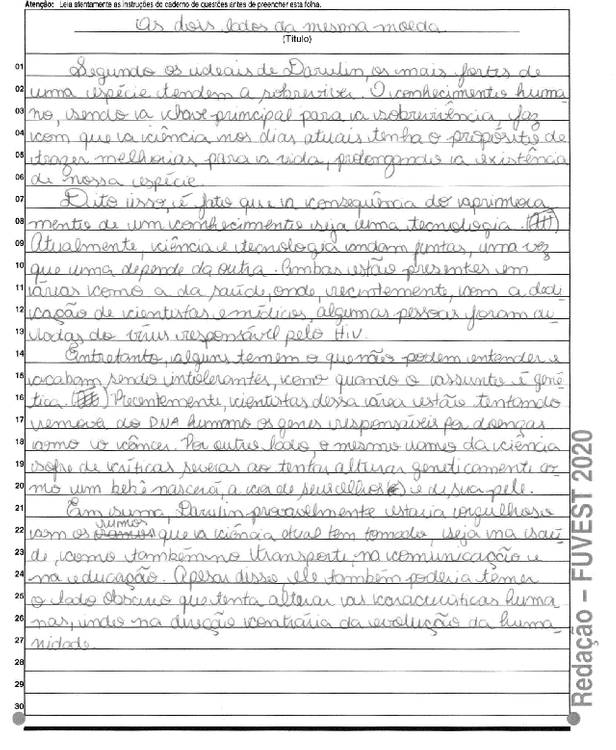 Atenção: Leia atentamente as instruções do caderno de questões antes de preencher esta folha.
As dois lados da mesma moeda
(Título)
01 Segundo os ideais de Darwin, os mais fortes de
02 uma espécie tendem a sobreviver. O conhecimento huma
03 no, sendo a chave principal para a sobrevivência, faz
04 com que a ciência nos dias atuais tenha o propósito de
05 trazer melhorias para a vida, prolongando a existência
06 de nossa espécie.
07 Dito isso, é fato que a consequência do aprimora
08 mento de um conhecimento seja uma tecnologia.
09 Atualmente, ciência e tecnologia andam juntas, uma vez
10 que uma depende da outra. Ambas estão presentes em
11 áreas como a da saúde, onde, recentemente, com a dedi_
12 cação de cientistas e médicos, algumas pessoas foram cu_
13 radas do vírus responsável pelo HIV.
14 Entretanto, alguns temem o que não podem entender e
15 acabam sendo intolerantes, como quando o assunto é gené_
16 tica. Recentemente, cientistas dessa área estão tentando
17 remover do DNA humano os genes responsáveis por doenças
18 como o câncer. Por outro lado, o mesmo ramo da ciência
19 sofre de críticas severas ao tentar alterar geneticamente co_
20 mo um bebê nascerá, a cor de seus olhos e de sua pele.
21 Em suma, Darwin provavelmente estaria orgulhoso
22 com os rumos que a ciência atual tem tomado, seja na saú_
23 de, como também no transporte, na comunicação e
24 na educação. Apesar disso, ele também poderia temer
25 o lado obscuro que tenta alterar as características huma_
26 nas, indo na direção contrária da evolução da huma_
27 nidade.
28
29
30
Redação – FUVEST 2020